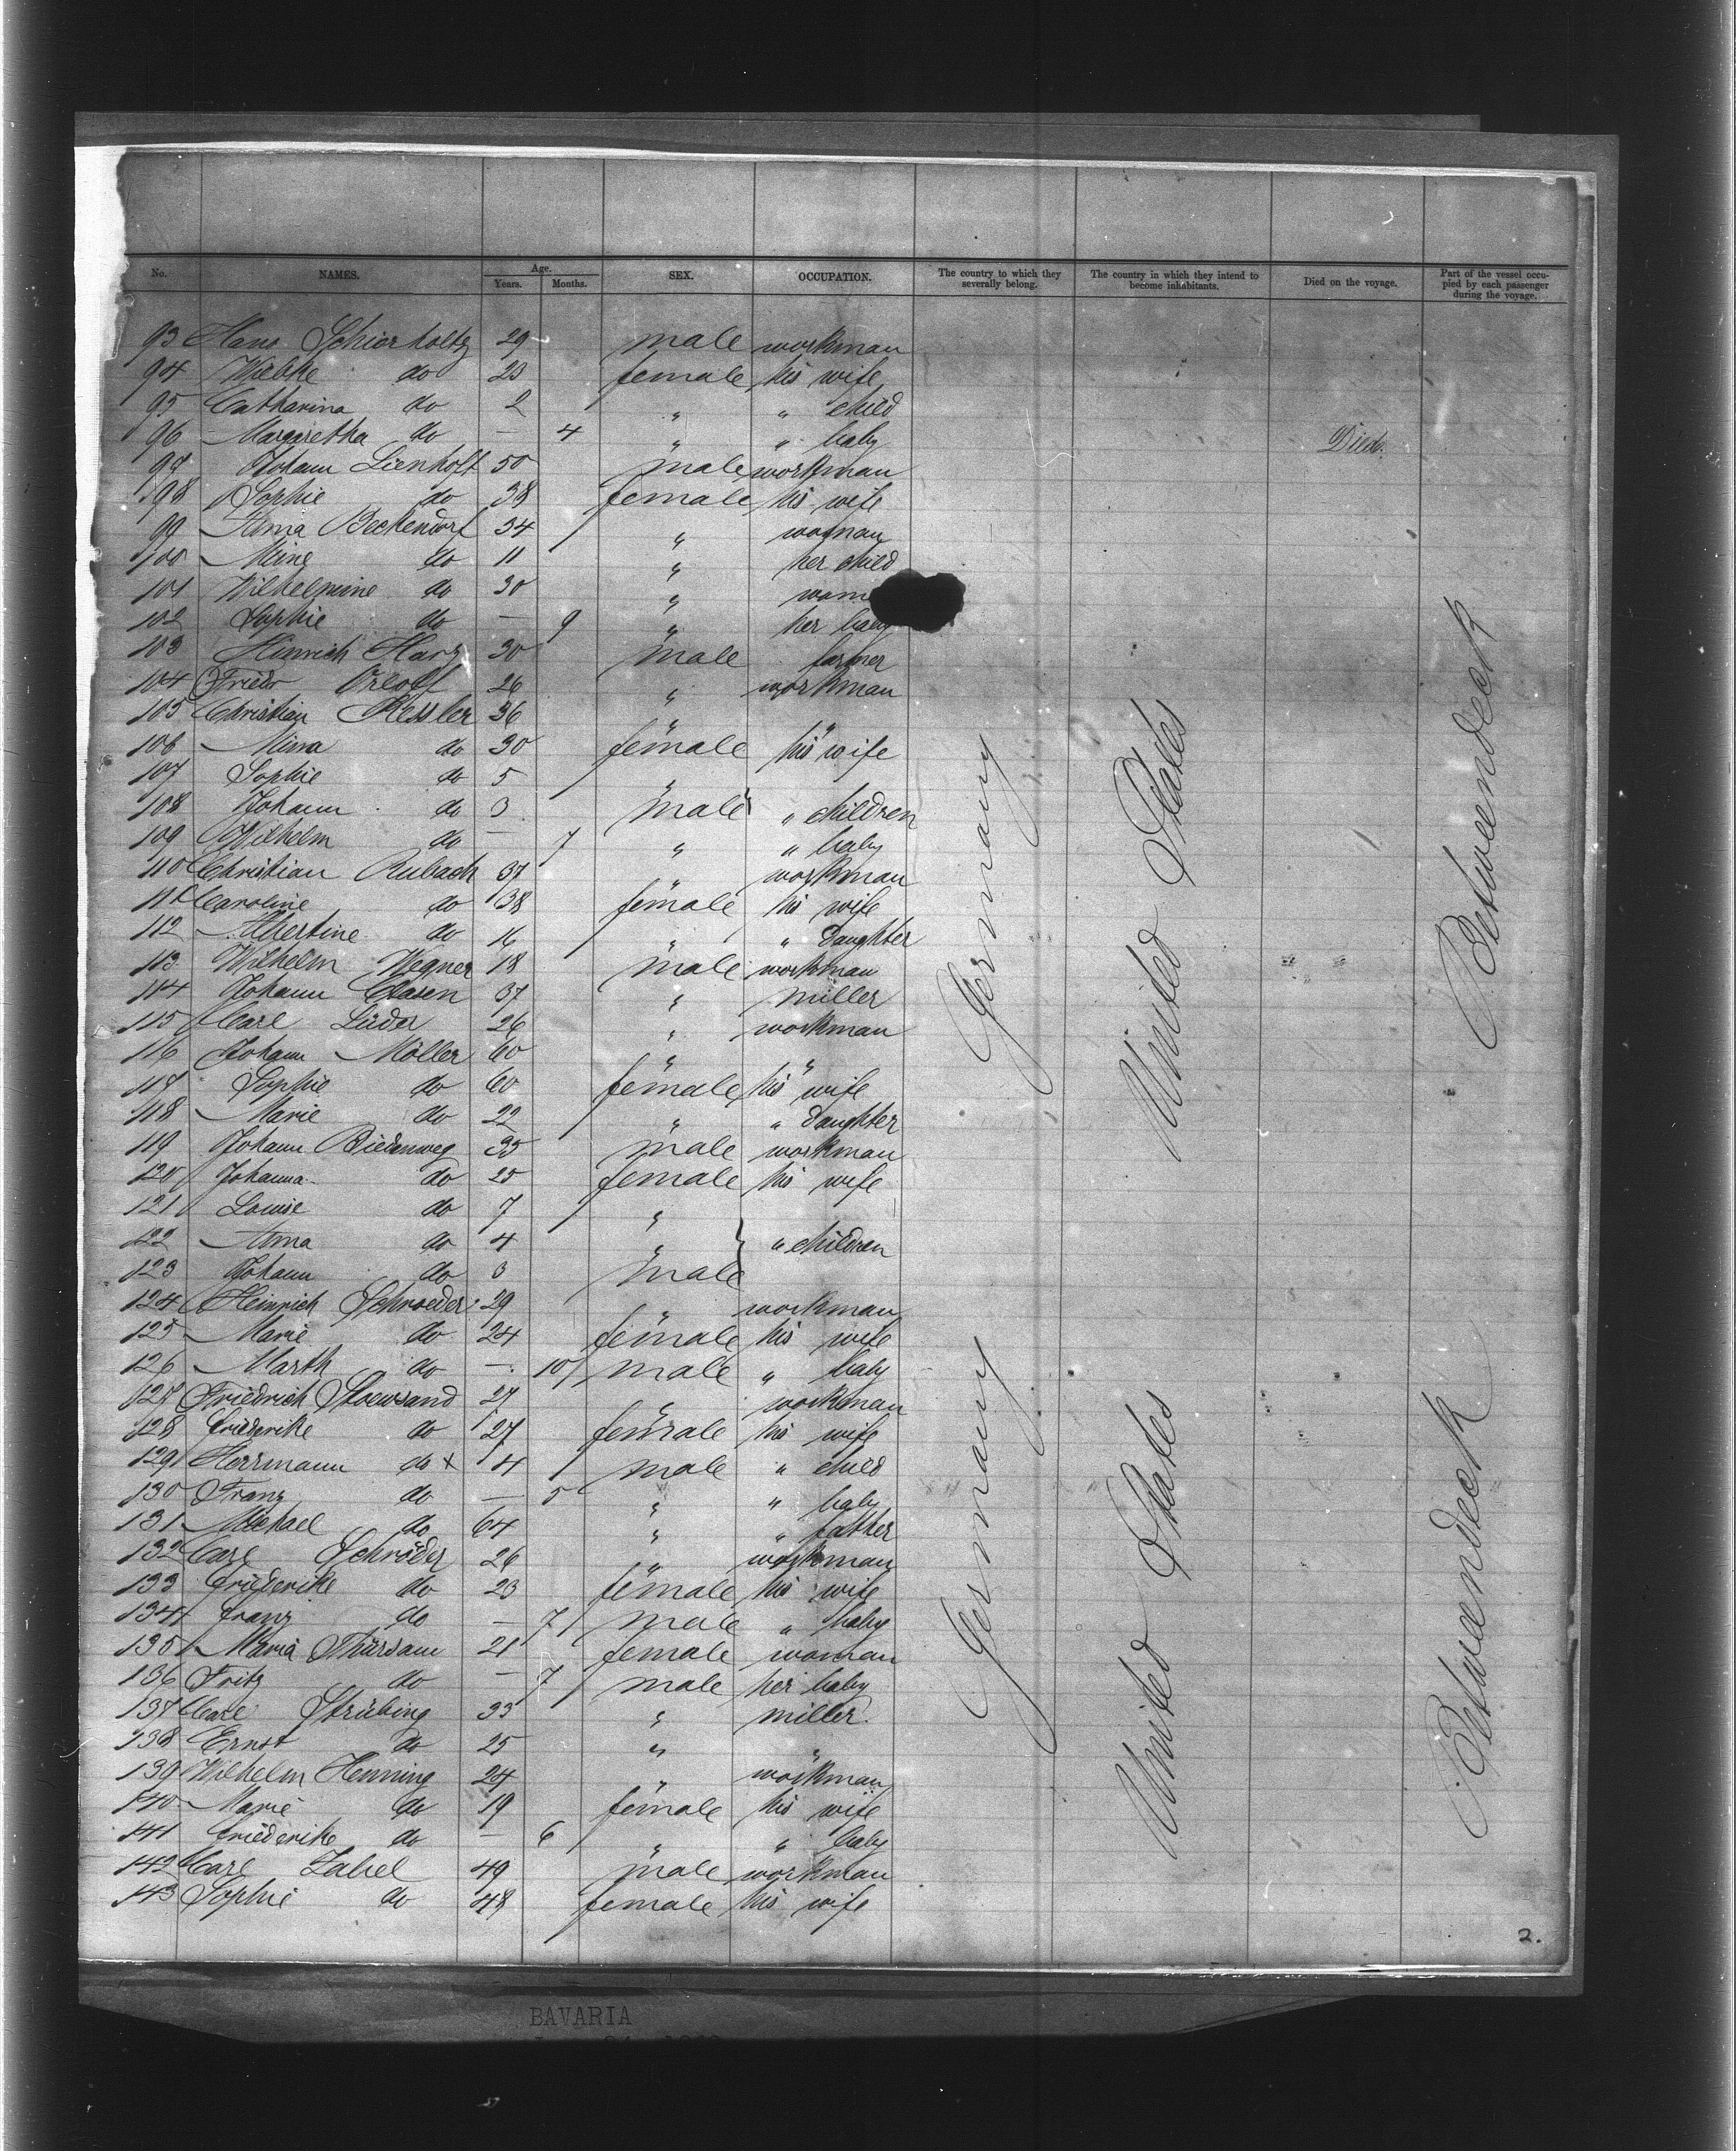 No. NAMES. Age. Years. Months. SEX. OCCUPATION. The country to which they severally belong. The country in which they intend to become inhabitants. Died on the voyage. Part of the vessel occupied by each passenger during the voyage.
93 Hans Schierholtz 29 male workman
94 Wiebke do 23 female his wife
95 Catharina do 2 " " child
96 Margaretha do — 4 " " baby Died.
97 Johann Lienhoff 50 male workman
98 Sophie do 38 female his wife
99 Anna Beckendorf 34 " woman
100 Mine do 11 " her child
101 Wilhelmine do 30 "
102 Sophie do — 9 " her baby
103 Hinrich Harz 30 male farmer
104 Friedr Orloff 26 " workman
105 Christian Kessler 36 " "
106 Minna do 30 female his wife
107 Sophie do 5 "
108 Johann do 3 male " children
109 Wilhelm do — 7 " " baby
110 Christian Rubach 37 " workman
111 Caroline do 38 female his wife
112 Albertine do 16 " " daughter
113 Wilhelm Wegner 18 male workman
114 Johann Clasen 37 " miller
115 Carl Lüder 26 " workman
116 Johann Möller 60 " "
117 Sophie do 60 female his wife
118 Marie do 22 " " daughter
119 Johann Biedenweg 35 male workman
120 Johanna do 25 female his wife
121 Louise do 7 "
122 Anna do 4 " " children
123 Johann do 3 male
124 Heinrich Schroeder 29 " workman
125 Marie do 24 female his wife
126 Marth do — 10 male " baby
127 Friedrich Stoewsand 27 " workman
128 Friederike do 27 female his wife
129 Herrmann do x 4 male " child
130 Franz do — 5 " " baby
131 Michael do 64 " " father
132 Carl Schröder 26 " workman
133 Friederike do 23 female his wife
134 Franz do — 7 male " baby
135 Maria Thürsam 21 female woman
136 Fritz do — 7 male her baby
137 Carl Strübing 33 " miller
138 Ernst do 25 " "
139 Wilhelm Henning 24 " workman
140 Marie do 19 female his wife
141 Friederike do — 6 " " baby
142 Carl Zabel 49 male workman
143 Sophie do 48 female his wife
Germany
United States
Betweendeck
Germany
United States
Betweendeck
2.
BAVARIA